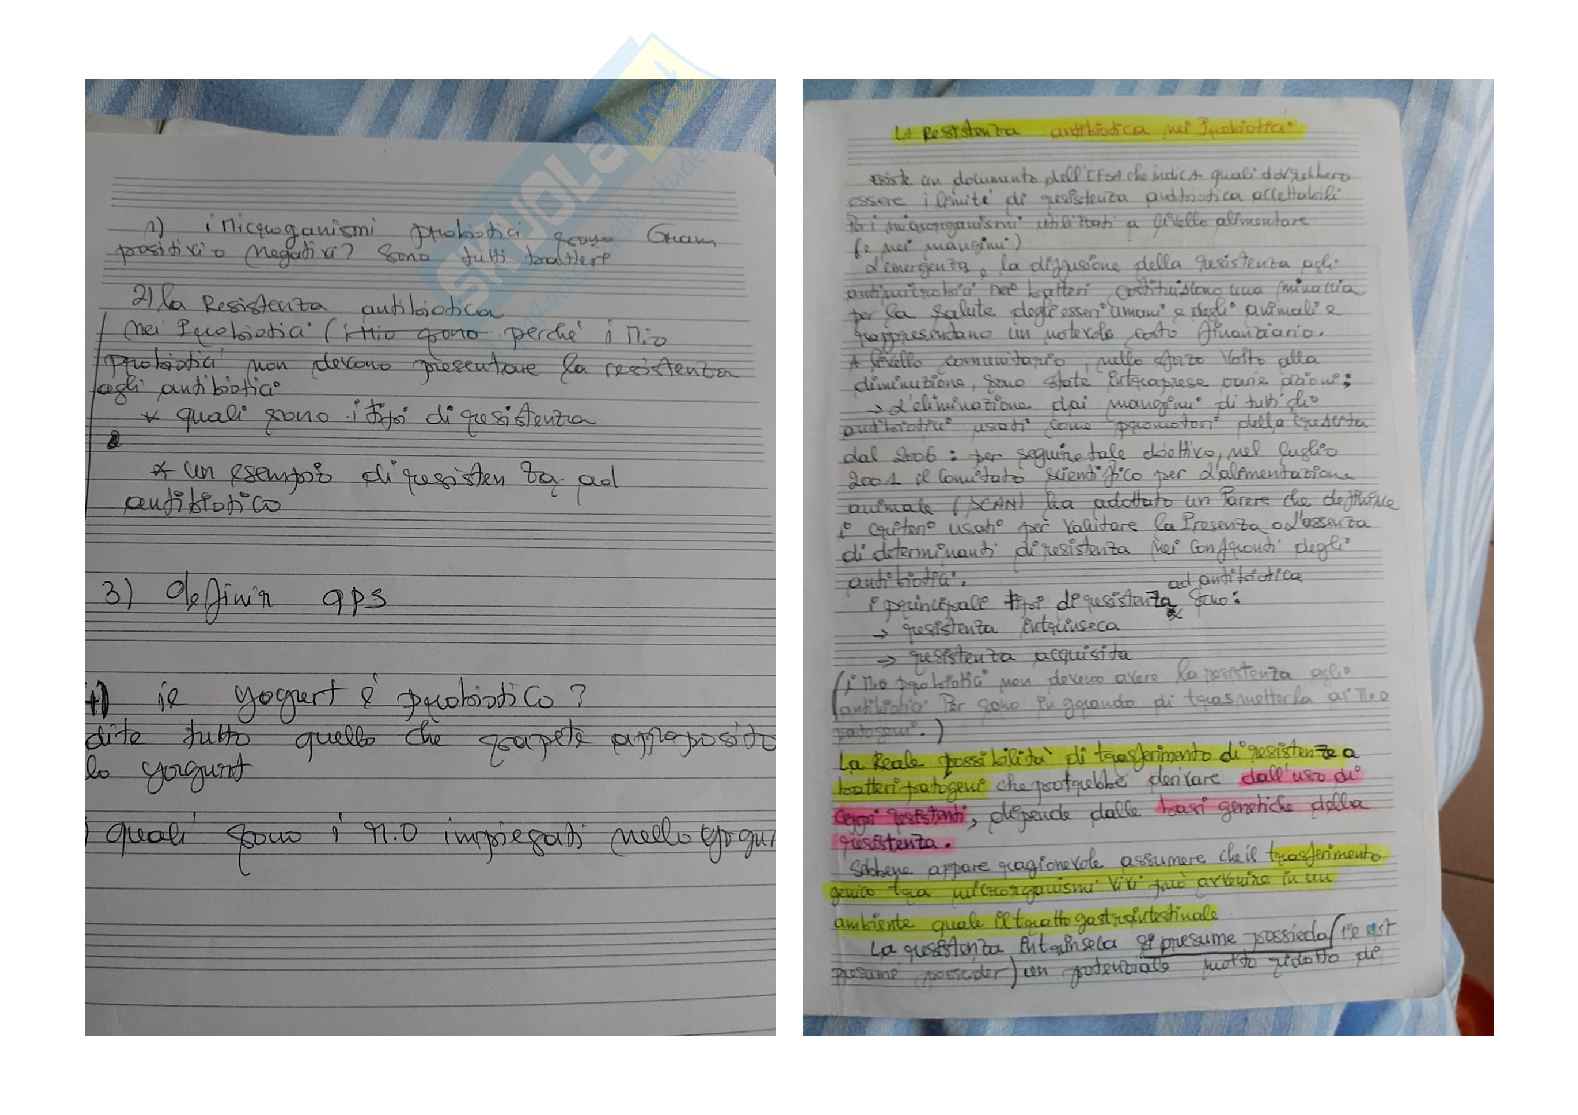 SKUOLA.net
1) i Microrganismi probiotici sono Gram
positivi o negativi? sono tutti batteri
2) la Resistenza antibiotica
nei Probiotici (i Mio sono perché i Mio
probiotici non devono presentare la resistenza
agli antibiotici
* quali sono i tipi di resistenza
* un esempio di resistenza ad
antibiotico
3) definir qps
4) il yogurt è probiotico?
dite tutto quello che sapete approposito
lo yogurt
quali sono i M.O impiegati nello yogur
La Resistenza antibiotica nei Probiotici
esiste un documento dell'EFSA che indica quali dovrebbero
essere i limiti di resistenza antibiotica accettabili
Per i microrganismi utilizzati a livello alimentare
(e nei mangimi)
L'emergenza, la diffusione della resistenza agli
antimicrobici nei batteri costituiscono una minaccia
per la salute degli esseri umani e degli animali e
rappresentano un notevole costo finanziario.
A livello comunitario, nello sforzo volto alla
diminuzione, sono state intraprese varie azioni:
→ L'eliminazione dai mangimi di tutti gli
antibiotici usati come "promotori" della crescita
dal 2006: per seguire tale obiettivo, nel luglio
2001 il Comitato scientifico per l'alimentazione
animale (SCAN) ha adottato un Parere che definisce
i criteri usati per valutare la Presenza o l'assenza
di determinanti di resistenza nei confronti degli
antibiotici.
i principali tipi di resistenza ad antibiotica sono:
→ resistenza intrinseca
→ resistenza acquisita
(i Mo probiotici non devono avere la resistenza agli
antibiotici Per sono in grado di trasmetterla ai Mo
patogeni.)
La Reale possibilità di trasferimento di resistenze a
batteri patogeni che potrebbe derivare dall'uso di
ceppi resistenti, dipende dalle basi genetiche della
resistenza.
Sebbene appare ragionevole assumere che il trasferimento
genico tra microrganismi vivi può avvenire in un
ambiente quale il tratto gastrointestinale
La resistenza intrinseca si presume possieda (ie est
presume posseder) un potenziale molto ridotto di